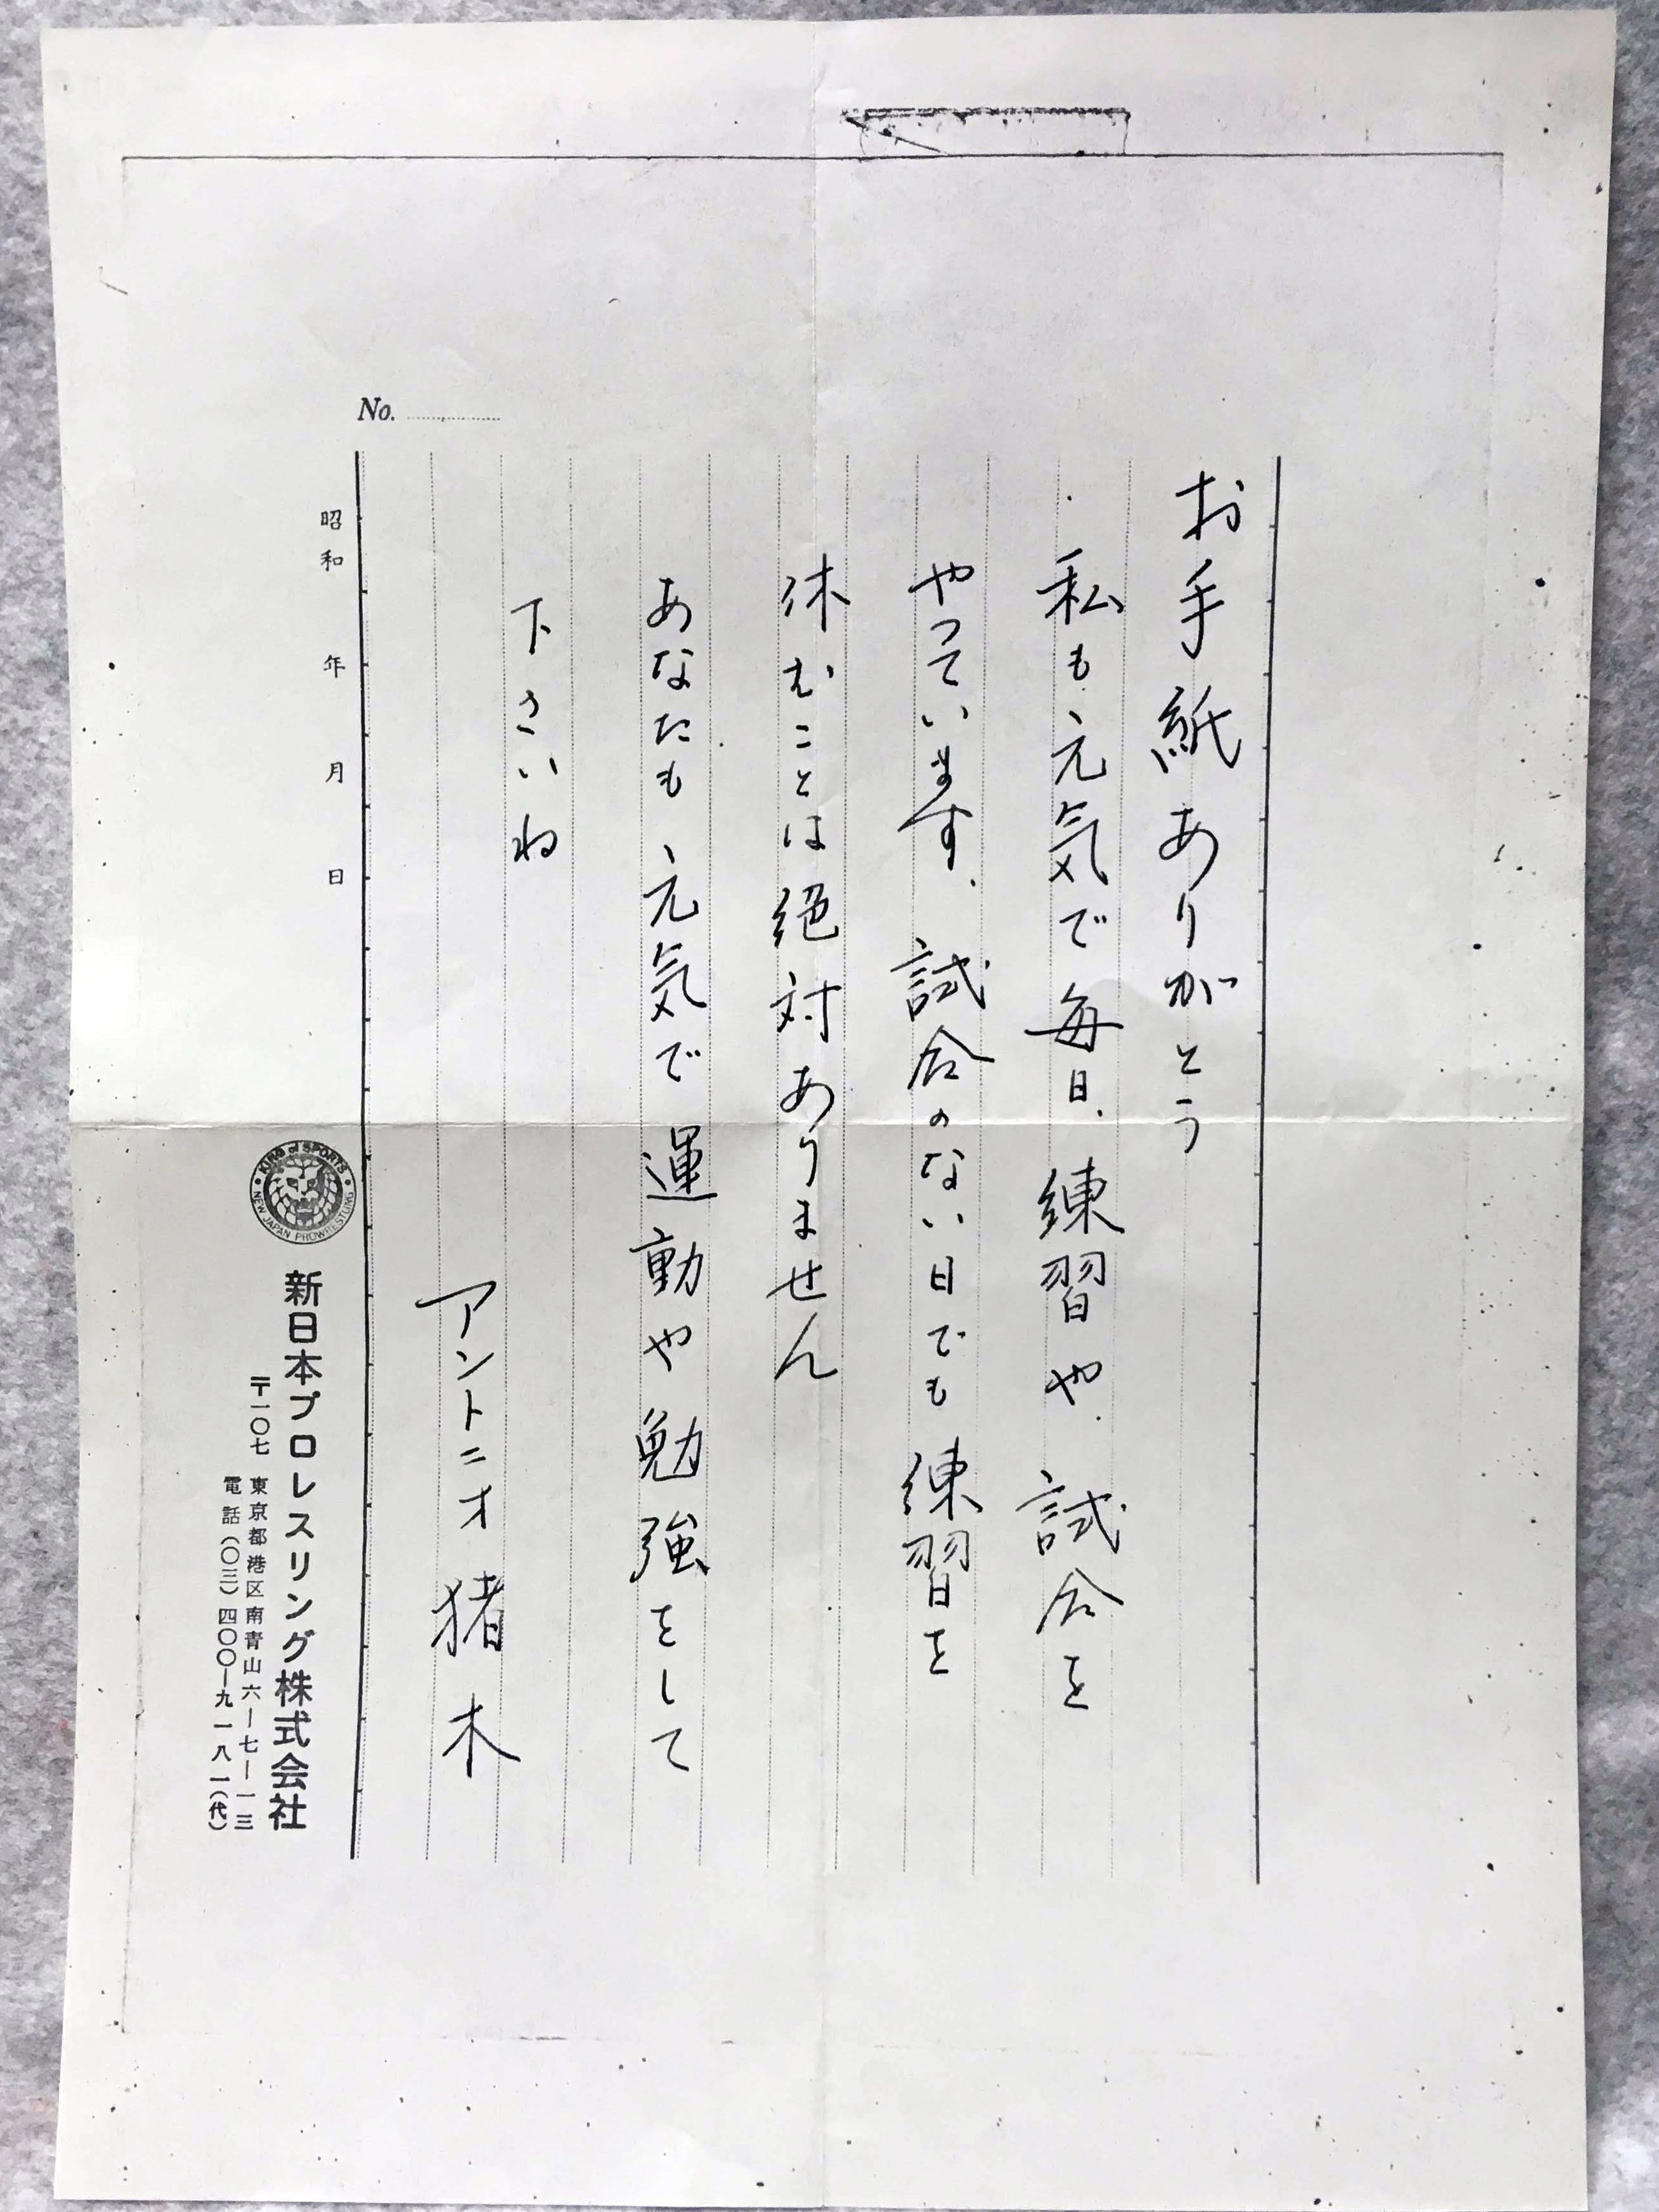 お手紙ありがとう
私も元気で毎日、練習や試合を
やっています、試合のない日でも練習を
休むことは絶対ありません
あなたも元気で運動や勉強をして
下さいね
アントニオ猪木
No.
昭和 年 月 日
KING of SPORTS
NEW JAPAN PROWRESTLING
新日本プロレスリング株式会社
〒一〇七 東京都港区南青山六ー七ー一三
電話(〇三)四〇〇ー九一八一(代)